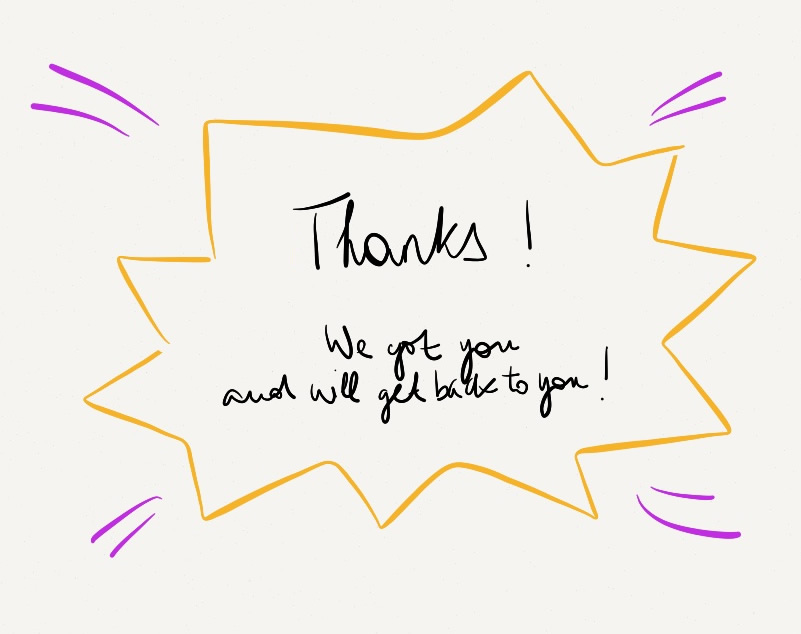 Thanks !
We got you
and will get back to you !